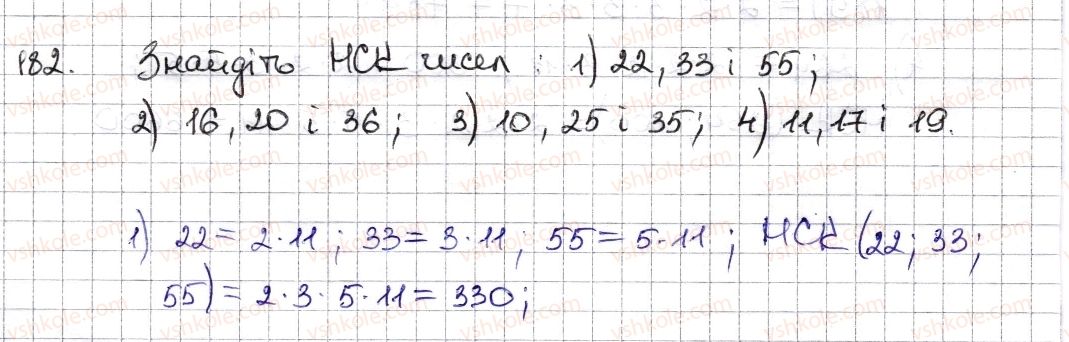 182. Знайдіть НСК чисел : 1) 22, 33 і 55;
2) 16, 20 і 36; 3) 10, 25 і 35; 4) 11, 17 і 19.
1) 22 = 2·11; 33 = 3·11; 55 = 5·11; НСК (22; 33;
55) = 2·3·5·11 = 330;